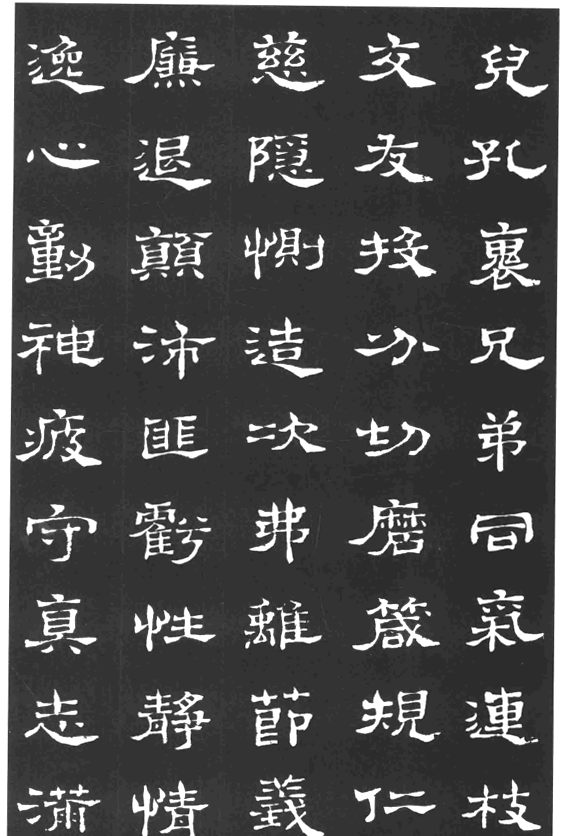 兒孔裏兄弟同氣連枝
交友投分切磨箴規仁
慈隱惻造次弗離節義
廉退顛沛匪虧性靜情
逸心動神疲守真志滿